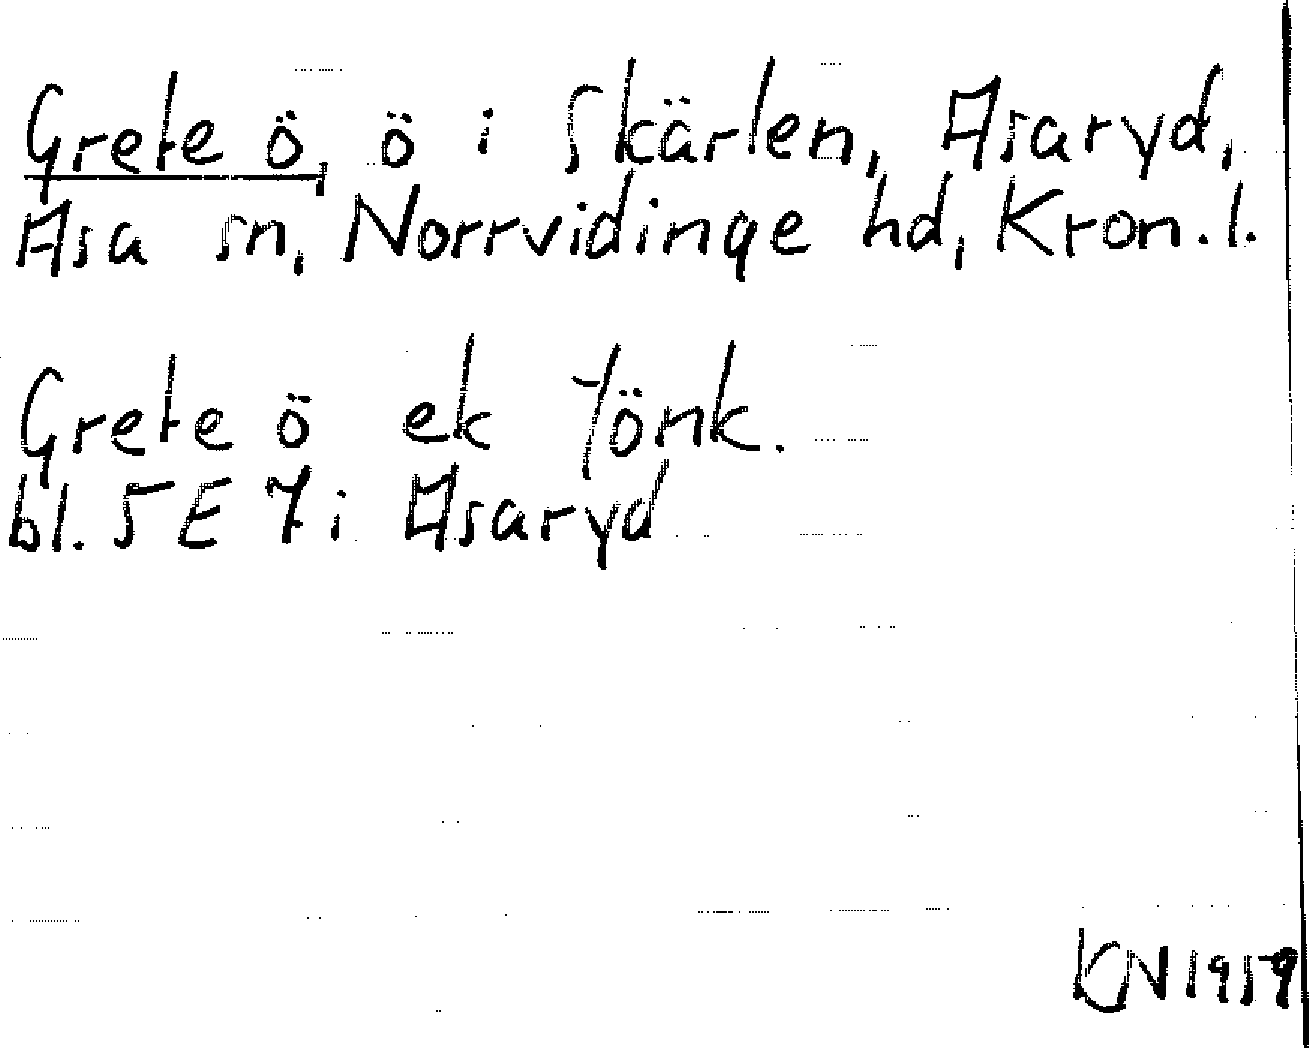 Grete ö, ö i Skärlen, Asaryd,
Asa sn, Norrvidinge hd, Kron.l.
Grete ö ek Jönk.
bl. 5E 7i Asaryd
KN 1959